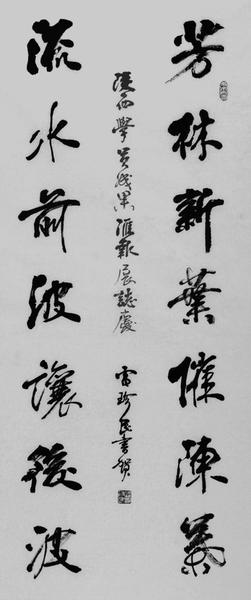 芳林新葉催陳葉
流水前波讓後波
陝西學員成果匯報展誌慶
雷珍民書賀